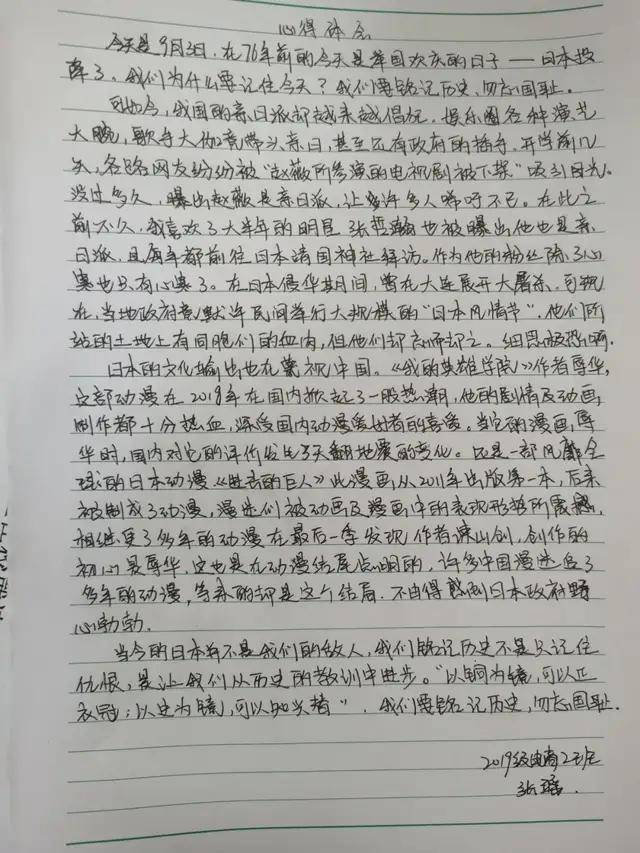 心得体会
今天是9月3日,在76年前的今天是举国欢庆的日子——日本投
降了。我们为什么要记住今天?我们要铭记历史,勿忘国耻。
可如今,我国的亲日派却越来越猖狂。娱乐圈各种演艺
大腕,歌手大伽竟带头亲日,甚至还有政府的插手。开学前几
天,各路网友纷纷被“赵薇所参演的电视剧被下架”吸引目光。
没过多久,曝出赵薇是亲日派,让许多人唏嘘不已。在此之
前不久,我喜欢了大半年的明星张哲瀚也被曝出他也是亲
日派,且每年都前往日本靖国神社拜访。作为他的粉丝除了心
寒也只有心寒了。在日本侵华期间,曾在大连展开大屠杀,可现
在,当地政府竟默许民间举行大规模的“日本风情节”,他们所
站的土地上有同胞们的血肉,但他们却忘而却之。细思极恐啊。
日本的文化输出也在蔑视中国。《我的英雄学院》作者辱华,
这部动漫在2018年在国内掀起了一股热潮,他的剧情及动画
制作都十分热血,深受国内动漫爱好者的喜爱。当它的漫画辱
华时,国内对它的评价发生了天翻地震的变化。比是一部风靡全
球的日本动漫《进击的巨人》此漫画从2011年出版第一本,后来
被制成了动漫,漫迷们被动画及漫画中的表现形势所震撼,
相继追了多年的动漫在最后一季发现,作者谏山创,创作的
初心是辱华,这也是在动漫结尾点明的,许多中国漫迷追了
多年的动漫,等来的却是这个结后,不由得感到日本政府野
心勃勃.
当今的日本并不是我们的敌人,我们铭记历史不是只记住
仇恨,是让我们从历史的教训中进步。“以铜为镜,可以正
衣冠;以史为镜,可以知兴替”.我们要铭记历史,勿忘国耻.
2019级电商2班
张瑶.